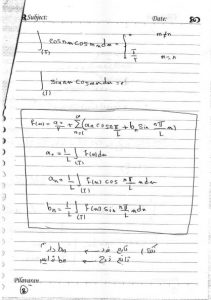 Subject: Date:
∫(T) cosnx cosmx dx = { 0 m≠n
T/2 m=n
∫(T) sinnx cosmx dx = 0
f(x) = a₀/2 + Σ(n=1→∞) (aₙ cos nπ/L x + bₙ sin nπ/L x)
a₀ = 1/L ∫(T) f(x) dx
aₙ = 1/L ∫(T) f(x) cos nπ/L x dx
bₙ = 1/L ∫(T) f(x) sin nπ/L x dx
تابع فرد
تابع زوج